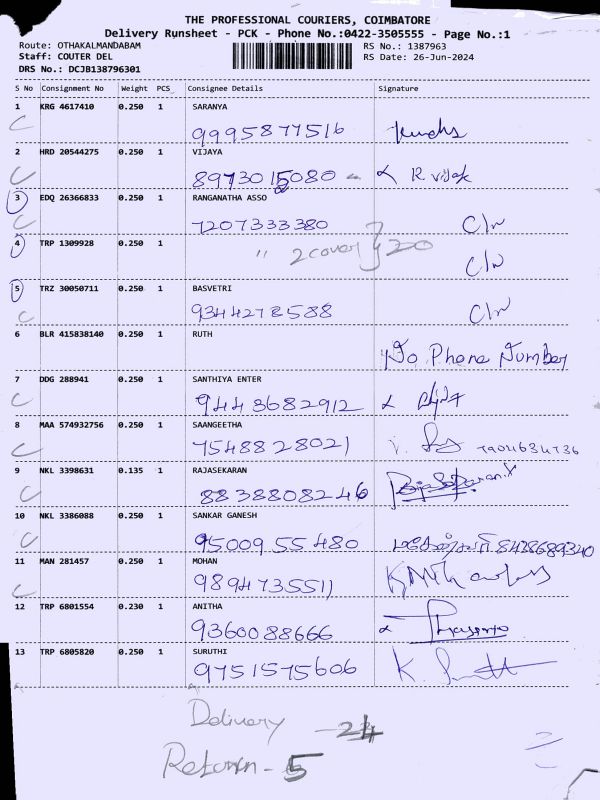 THE PROFESSIONAL COURIERS, COIMBATORE
Delivery Runsheet - PCK - Phone No.:0422-3505555 - Page No.:1
Route: OTHAKALMANDABAM
RS No.: 1387963
Staff: COUTER DEL
RS Date: 26-Jun-2024
DRS No.: DCJB138796301
S No Consignment No Weight PCS Consignee Details Signature
1 KRG 4617410 0.250 1 SARANYA
9995877516
2 HRD 20544275 0.250 1 VIJAYA
8973015080
3 EDQ 26366833 0.250 1 RANGANATHA ASSO
7207333380 C/n
4 TRP 1309928 0.250 1
" 2 cover } 20
C/n
5 TRZ 30050711 0.250 1 BASVETRI
9344278588 C/n
6 BLR 415838140 0.250 1 RUTH
No Phone Number
7 DDG 288941 0.250 1 SANTHIYA ENTER
9443682912
8 MAA 574932756 0.250 1 SAANGEETHA
7548828021 7904634736
9 NKL 3398631 0.135 1 RAJASEKARAN
8838808246
10 NKL 3386088 0.250 1 SANKAR GANESH
9500955480 8438689340
11 MAN 281457 0.250 1 MOHAN
9894735511
12 TRP 6801554 0.230 1 ANITHA
9360088666
13 TRP 6805820 0.250 1 SURUTHI
9751575606
Delivery - 24
Return - 5